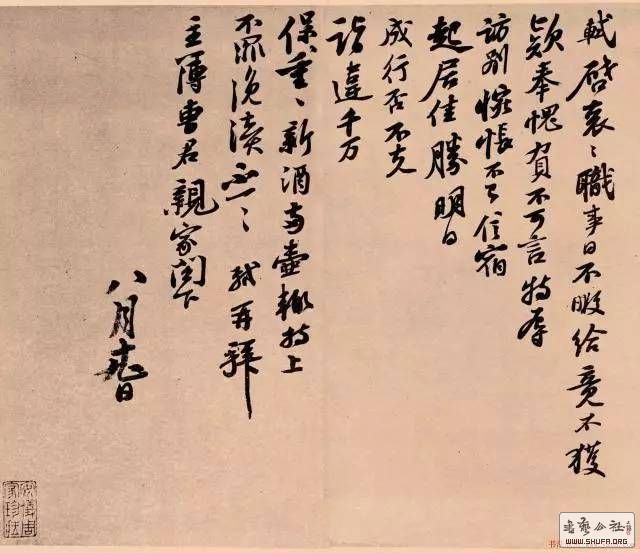 軾啓衮〻職事日不暇給竟不獲
款奉愧負不可言特辱
訪別惋悵不已信宿
起居佳勝明日
成行否不克
詣違千万
保重〻新酒兩壺輒持上
不罪浼瀆不一〻軾再拜
主簿曹君親家閣下
八月 日
安儀周家珍藏
书艺公社
WWW.SHUFA.ORG